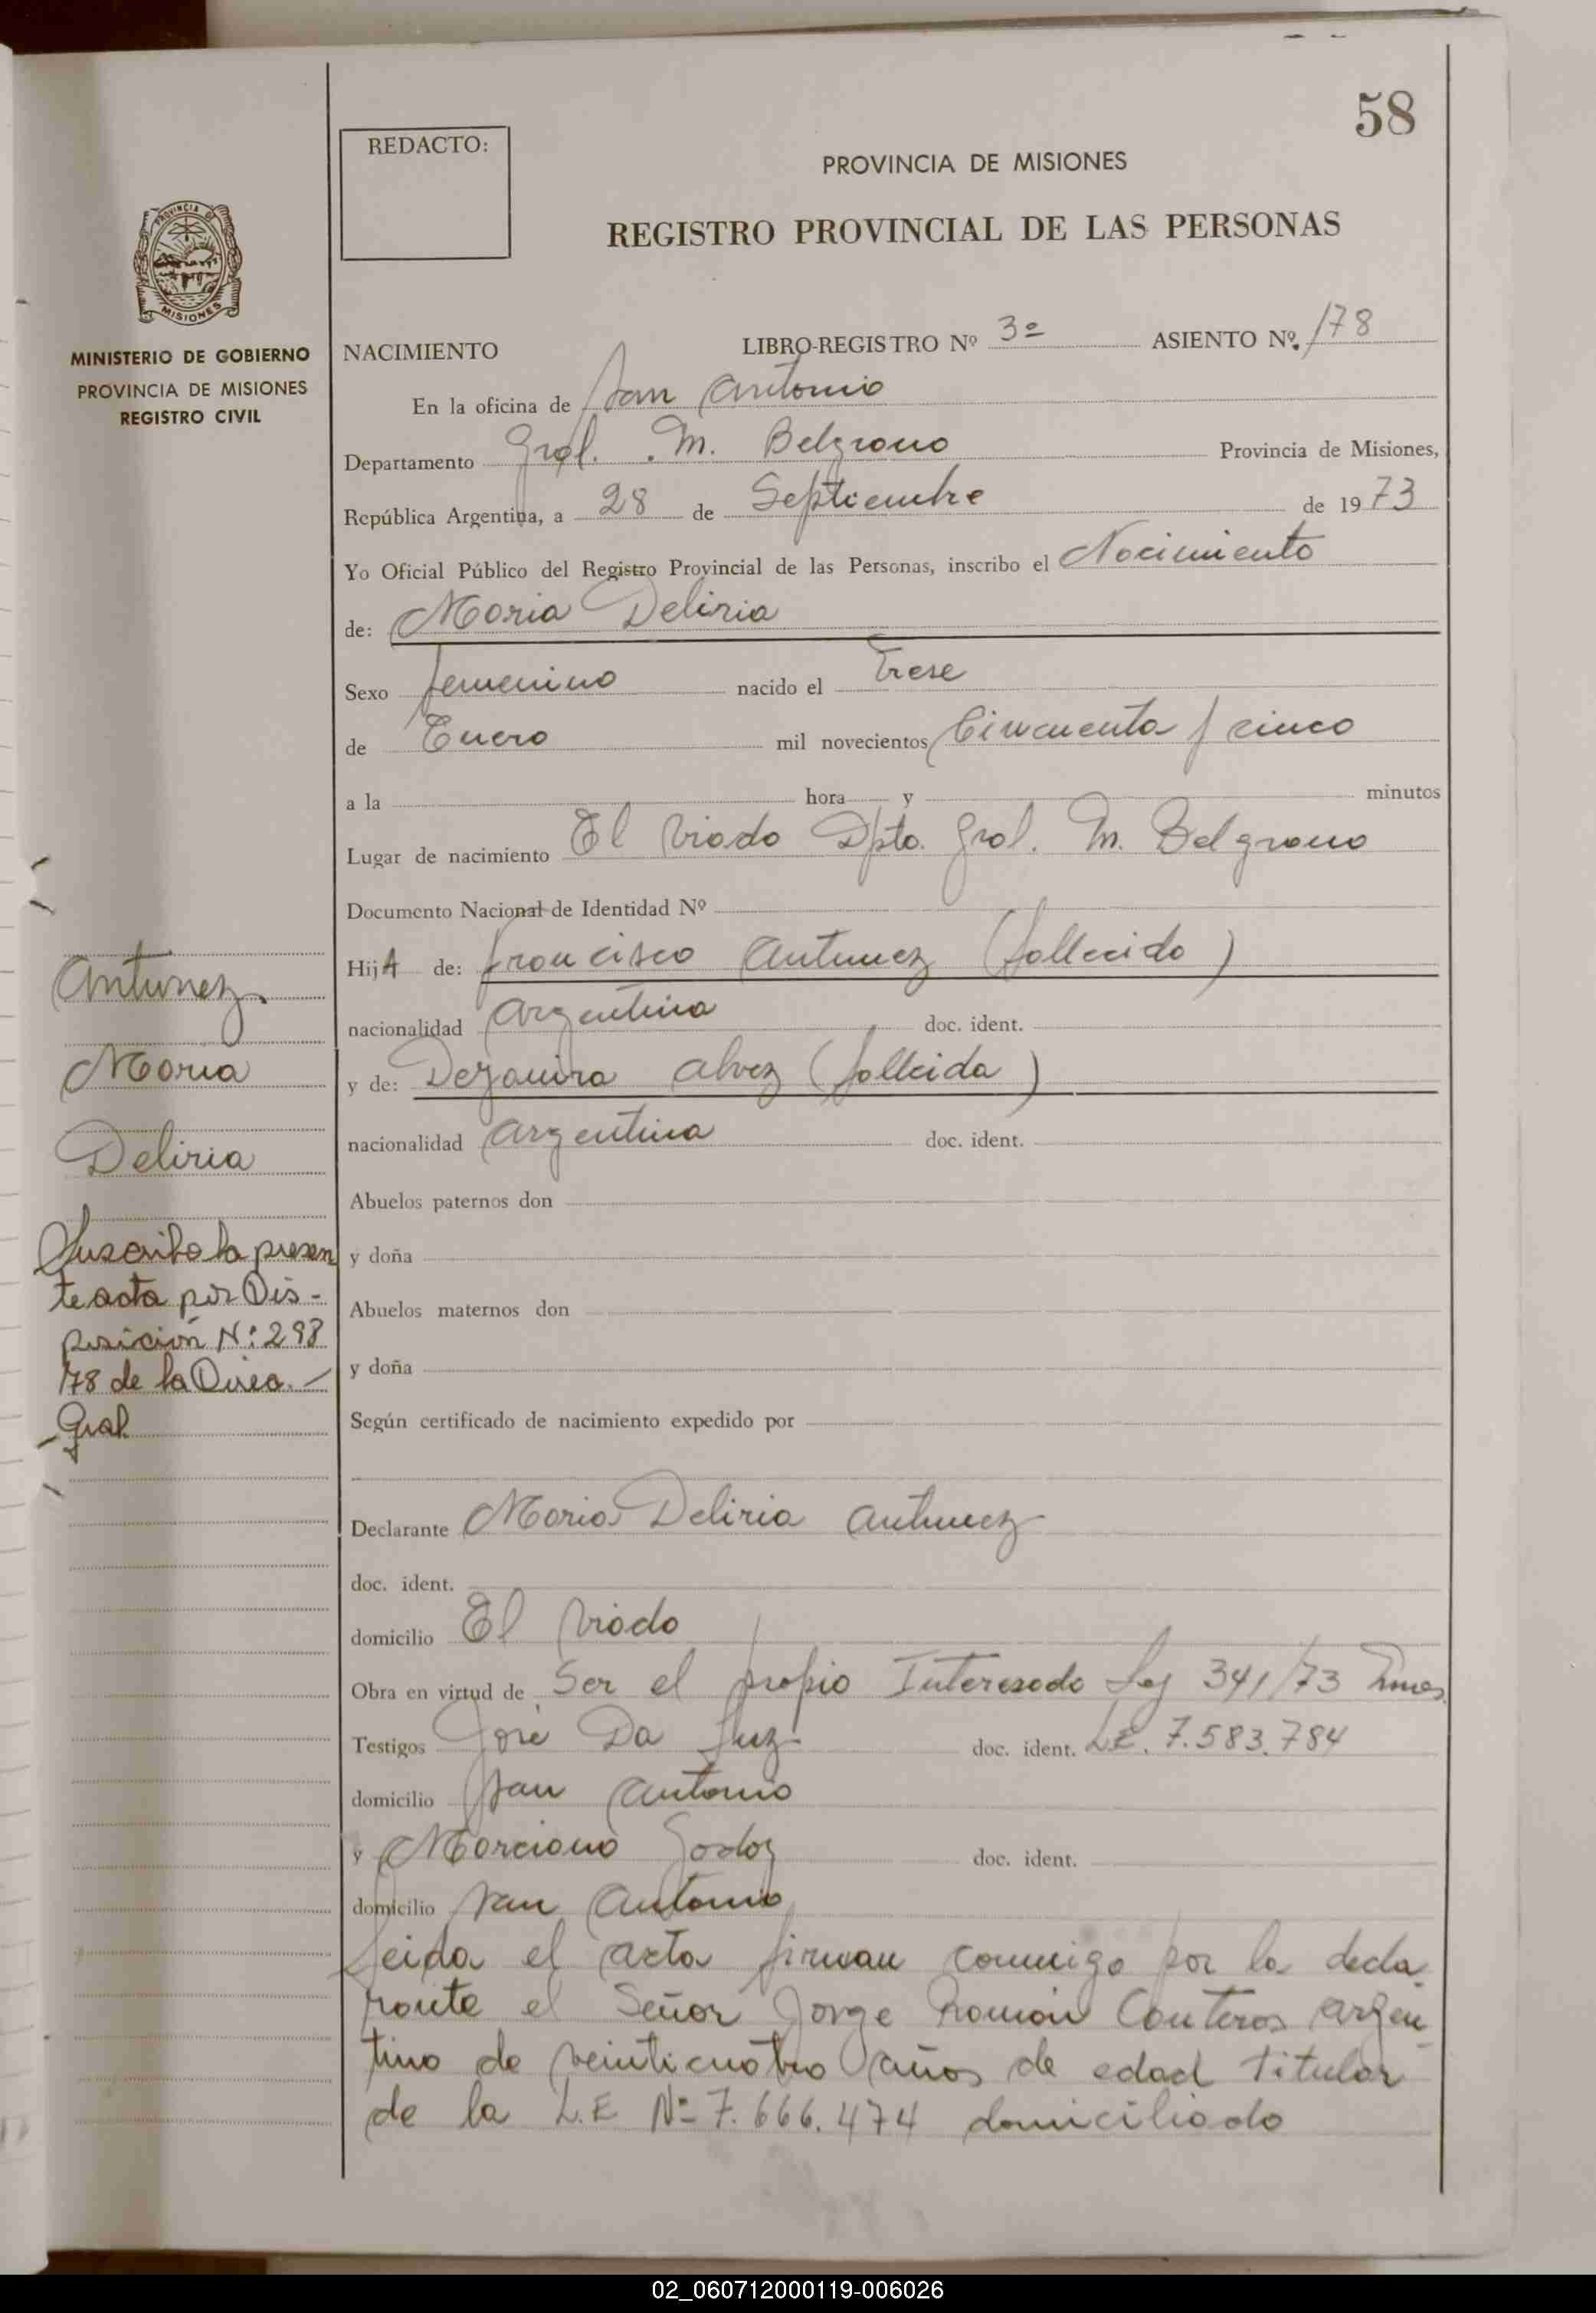 58
REDACTO:
PROVINCIA DE MISIONES
REGISTRO PROVINCIAL DE LAS PERSONAS
PROVINCIA DE
MISIONES
MINISTERIO DE GOBIERNO
PROVINCIA DE MISIONES
REGISTRO CIVIL
NACIMIENTO LIBRO-REGISTRO Nº 3º ASIENTO Nº. 178
En la oficina de San Antonio
Departamento Gral. M. Belgrano Provincia de Misiones,
República Argentina, a 28 de Septiembre de 1973
Yo Oficial Público del Registro Provincial de las Personas, inscribo el Nacimiento
de: Maria Deliria
Sexo femenino nacido el Trese
de Enero mil novecientos Cincuenta y cinco
a la hora y minutos
Lugar de nacimiento El Viado Dpto. Gral. M. Belgrano
Documento Nacional de Identidad Nº
HijA de: Francisco Antunez (fallecido)
nacionalidad Argentina doc. ident.
y de: Dejanira Alvez (fallecida)
nacionalidad Argentina doc. ident.
Abuelos paternos don
y doña
Abuelos maternos don
y doña
Según certificado de nacimiento expedido por
Declarante Maria Deliria Antunez
doc. ident.
domicilio El Viado
Obra en virtud de Ser el propio Interesado Ley 341/73
Testigos José Da Luz doc. ident. L.E. 7.583.784
domicilio San Antonio
y Marciano Godoy doc. ident.
domicilio San Antonio
Leida el acta firman conmigo por la decla
rante el Señor Jorge Ramón Conteros argen
tino de veinticuatro años de edad titular
de la L.E Nº 7.666.474 domiciliado
Antunez
Maria
Deliria
Suscribo la presen
te acta por Dis-
posición N: 298
/78 de la Direc.
Gral
02_060712000119-006026